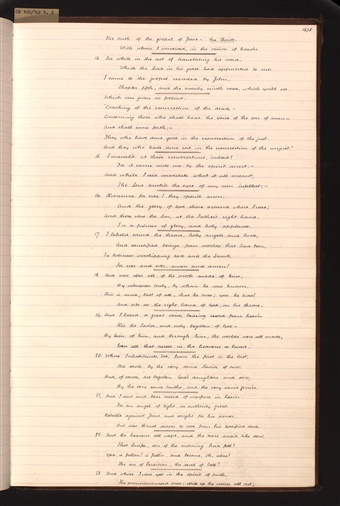 The truth of the gospel of Jesus - the Christ,
With whom I conversed, in the vision of heaven.
12. For while in the act of translating his word,
Which the Lord in his grace had appointed to me,
I came to the gospel recorded by John,
Chapter fifth, and the twenty ninth verse, which
Which was given as follows:
Speaking of the resurrection of the dead,
Concerning those who shall hear the voice of the son of man—
And shall come forth;—
They who have done good in the resurrection of the just.
And they who have done evil in the resurrection of the unjust.
I marvelled at these resurrections, indeed!
For it came unto me by the spirit direct:—
And while I did meditate what it all meant,
The Lord touched the eyes of my own intellect:—
16. Hosanna for ever! they opened anon,
And the glory of God shone around where I was;
And there was the Son, at the Father's right hand,
In a fulness of glory, and holy applause.
17. I beheld round the throne, holy angels and hosts,
And sanctified beings from worlds that have been,
In holiness worshipping God and the Lamb,
For ever and ever, amen and amen!
18. And now after all of the proofs made of him,
By witnesses truly, by whom he was known,
This is mine, last of all, that he lives; yea, he lives!
And sits at the right hand of God, on his throne.
19. And I heard a great voice, bearing record from heav'n,
He's the Saviour, and only begotten of God—
By him, of him, and through him, the worlds were all made,
Even all that career in the heavens so broad,
20. Whose inhabitants, too, from the first to the last,
Are sav'd by the very same Saviour of ours;
And, of course, are begotten God's daughters and sons,
By the very same truths, and the very same pow'rs.
21. And I saw and bear record of warfare in heav'n;
For an angel of light, in authority great,
Rebell'd against Jesus, and sought for his pow'r,
But was thrust down to woe from his Godified state.
22. And the heavens all wept, and the tears dropt like dew,
That Lucifer, son of the morning had fell!
Yea, is fallen! is fall'n, and become, Oh, alas!
The son of Perdition; the devil of hell!
23. And while I was yet in the spirit of truth,
The commandment was, write ye the vision all out;